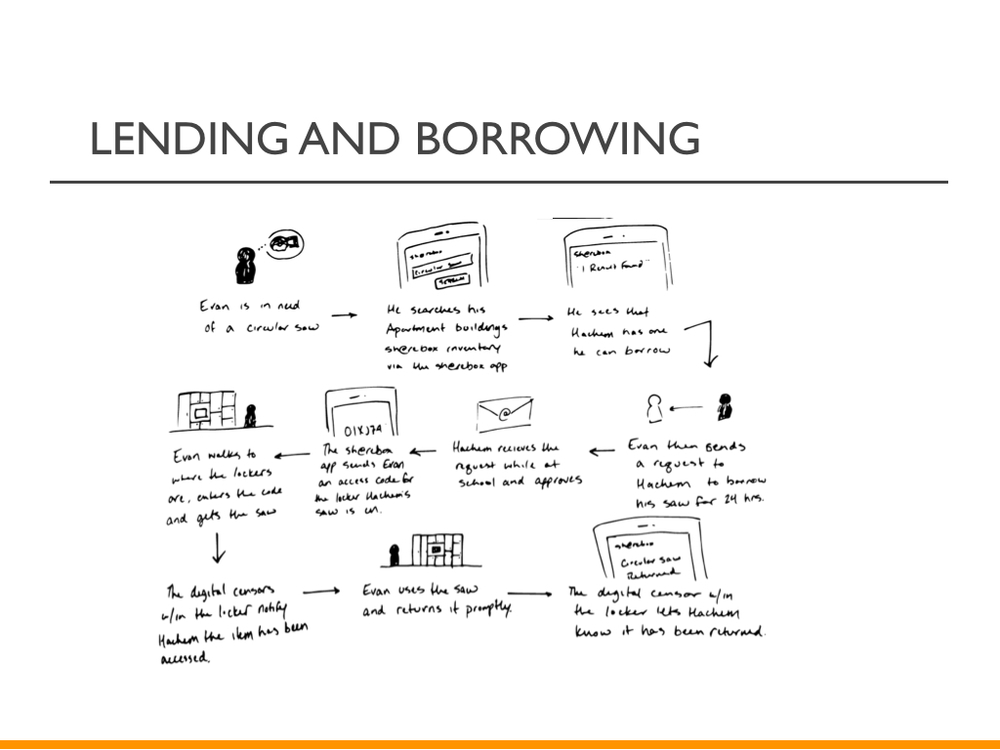 LENDING AND BORROWING
sherebox
Circular saw
SEARCH
sherebox
"1 Result Found"
Evan is in need
of a circular saw
He searches his
Apartment buildings
sherebox inventory
via the sherebox app
He sees that
Hachem has one
he can borrow
Evan then sends
a request to
Hachem to borrow
his saw for 24 hrs.
@
Hachem recieves the
request while at
school and approves
01XJ7A
The sherebox
app sends Evan
an access code for
the locker Hachem's
saw is in.
Evan walks to
where the lockers
are, enters the code
and gets the saw
The digital censors
w/in the locker notify
Hachem the item has been
accessed.
Evan uses the saw
and returns it promptly.
sherebox
Circular Saw
Returned
The digital censor w/in
the locker lets Hachem
know it has been returned.